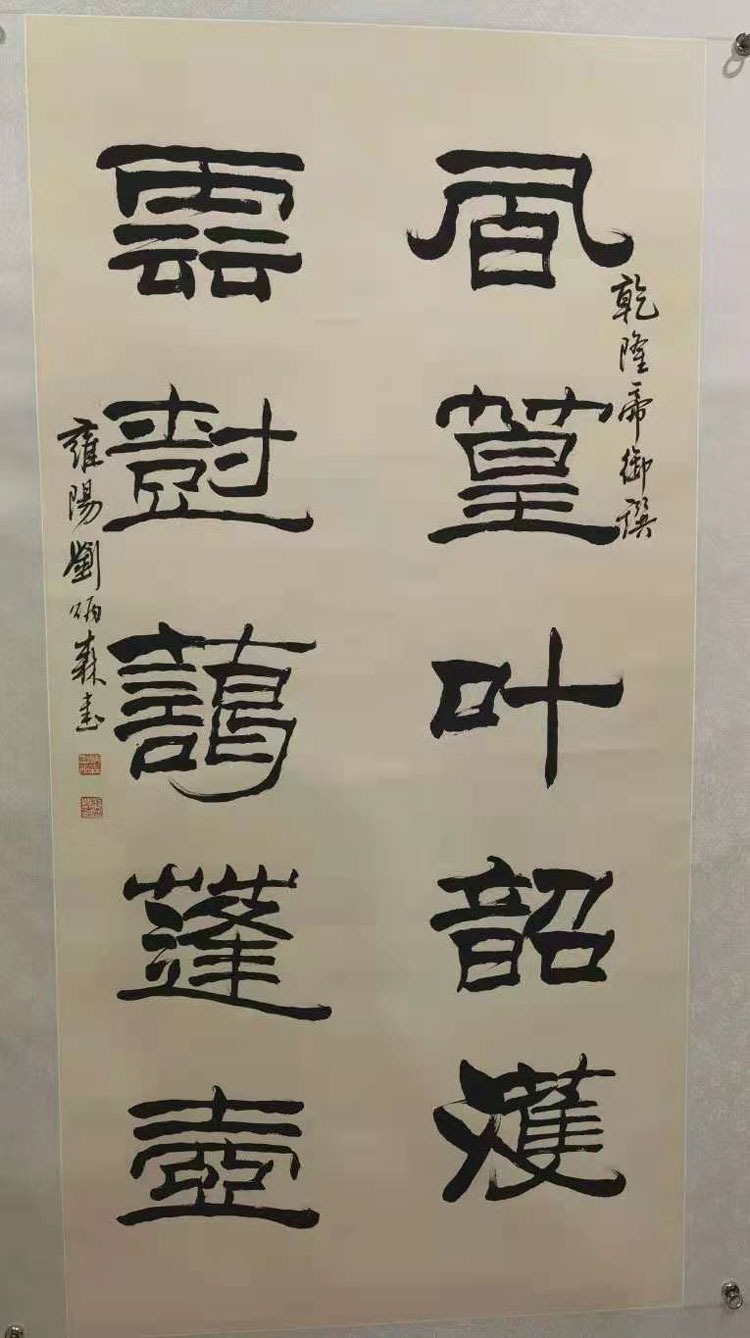 乾隆帝御撰
風篁叶韶獲
雲樹藹蓬壺
雍陽劉炳森書